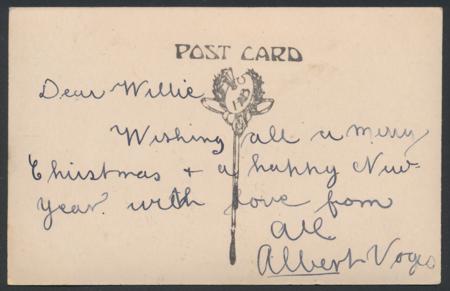 POST CARD
Dear Willie
Wishing all a merry
Christmas & a happy New-
Year. with love from
all
Albert